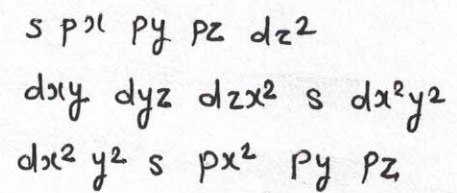 s px py pz dz²
dxy dyz dzx² s dx²y²
dx² y² s px² py pz